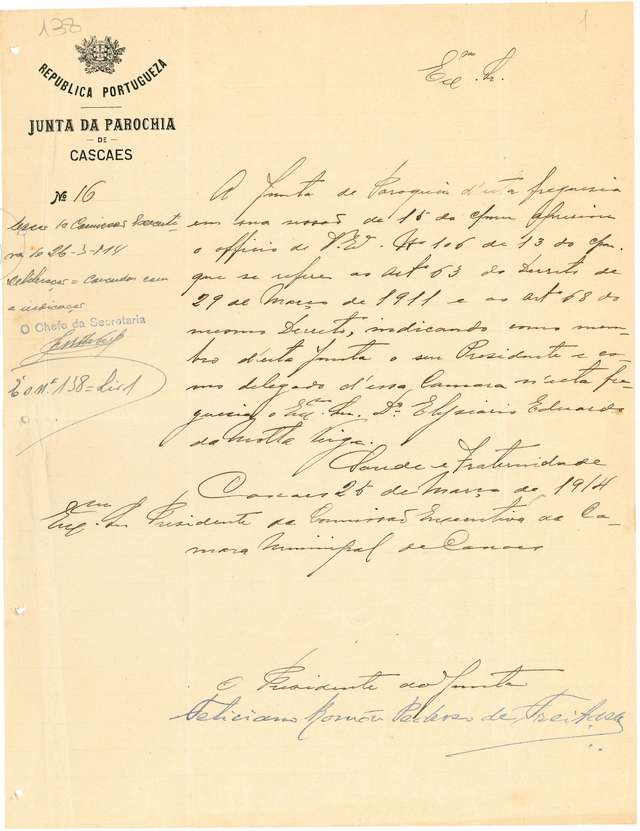 138
1
REPUBLICA PORTUGUEZA
JUNTA DA PAROCHIA
DE
CASCAES
Exmo Sr.
Nº 16
A Junta de Paroquia d'esta freguesia
em sua sessão de 15 do
o officio de V. Exª Nº 106 de 13 do
que se refere ao artº 63 do Decreto de
29 de Março de 1911 e ao artº 68 do
mesmo Decreto, indicando como mem-
bro d'esta Junta o seu Presidente e co-
mo delegado d'essa Camara n'esta fre-
guesia, o Exmo Snr. Dr. Eduardo
da Motta Veiga.
Saude e Fraternidade
Cascaes 25 de Março de 1914
Exmo Snr Presidente da Commissão Executiva da Ca-
mara Municipal de Cascaes
O Presidente da Junta
Feliciano de Freitas
da Commissão Executi-
va de 26-3-914
Deliberação = Concordou com
a indicação
O Chefe da Secretaria
É o nº 138 = Liv 1